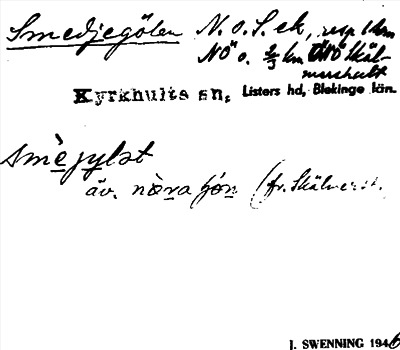 Smedjegölen N. o. S. ek, resp 1 km
NÖ o. 2/3 km ÖNÖ Skäl-
mershult
Kyrkhults sn, Listers hd, Blekinge län.
smè jylst
äv. nòra (fr. Skälmers.
J. SWENNING 1946